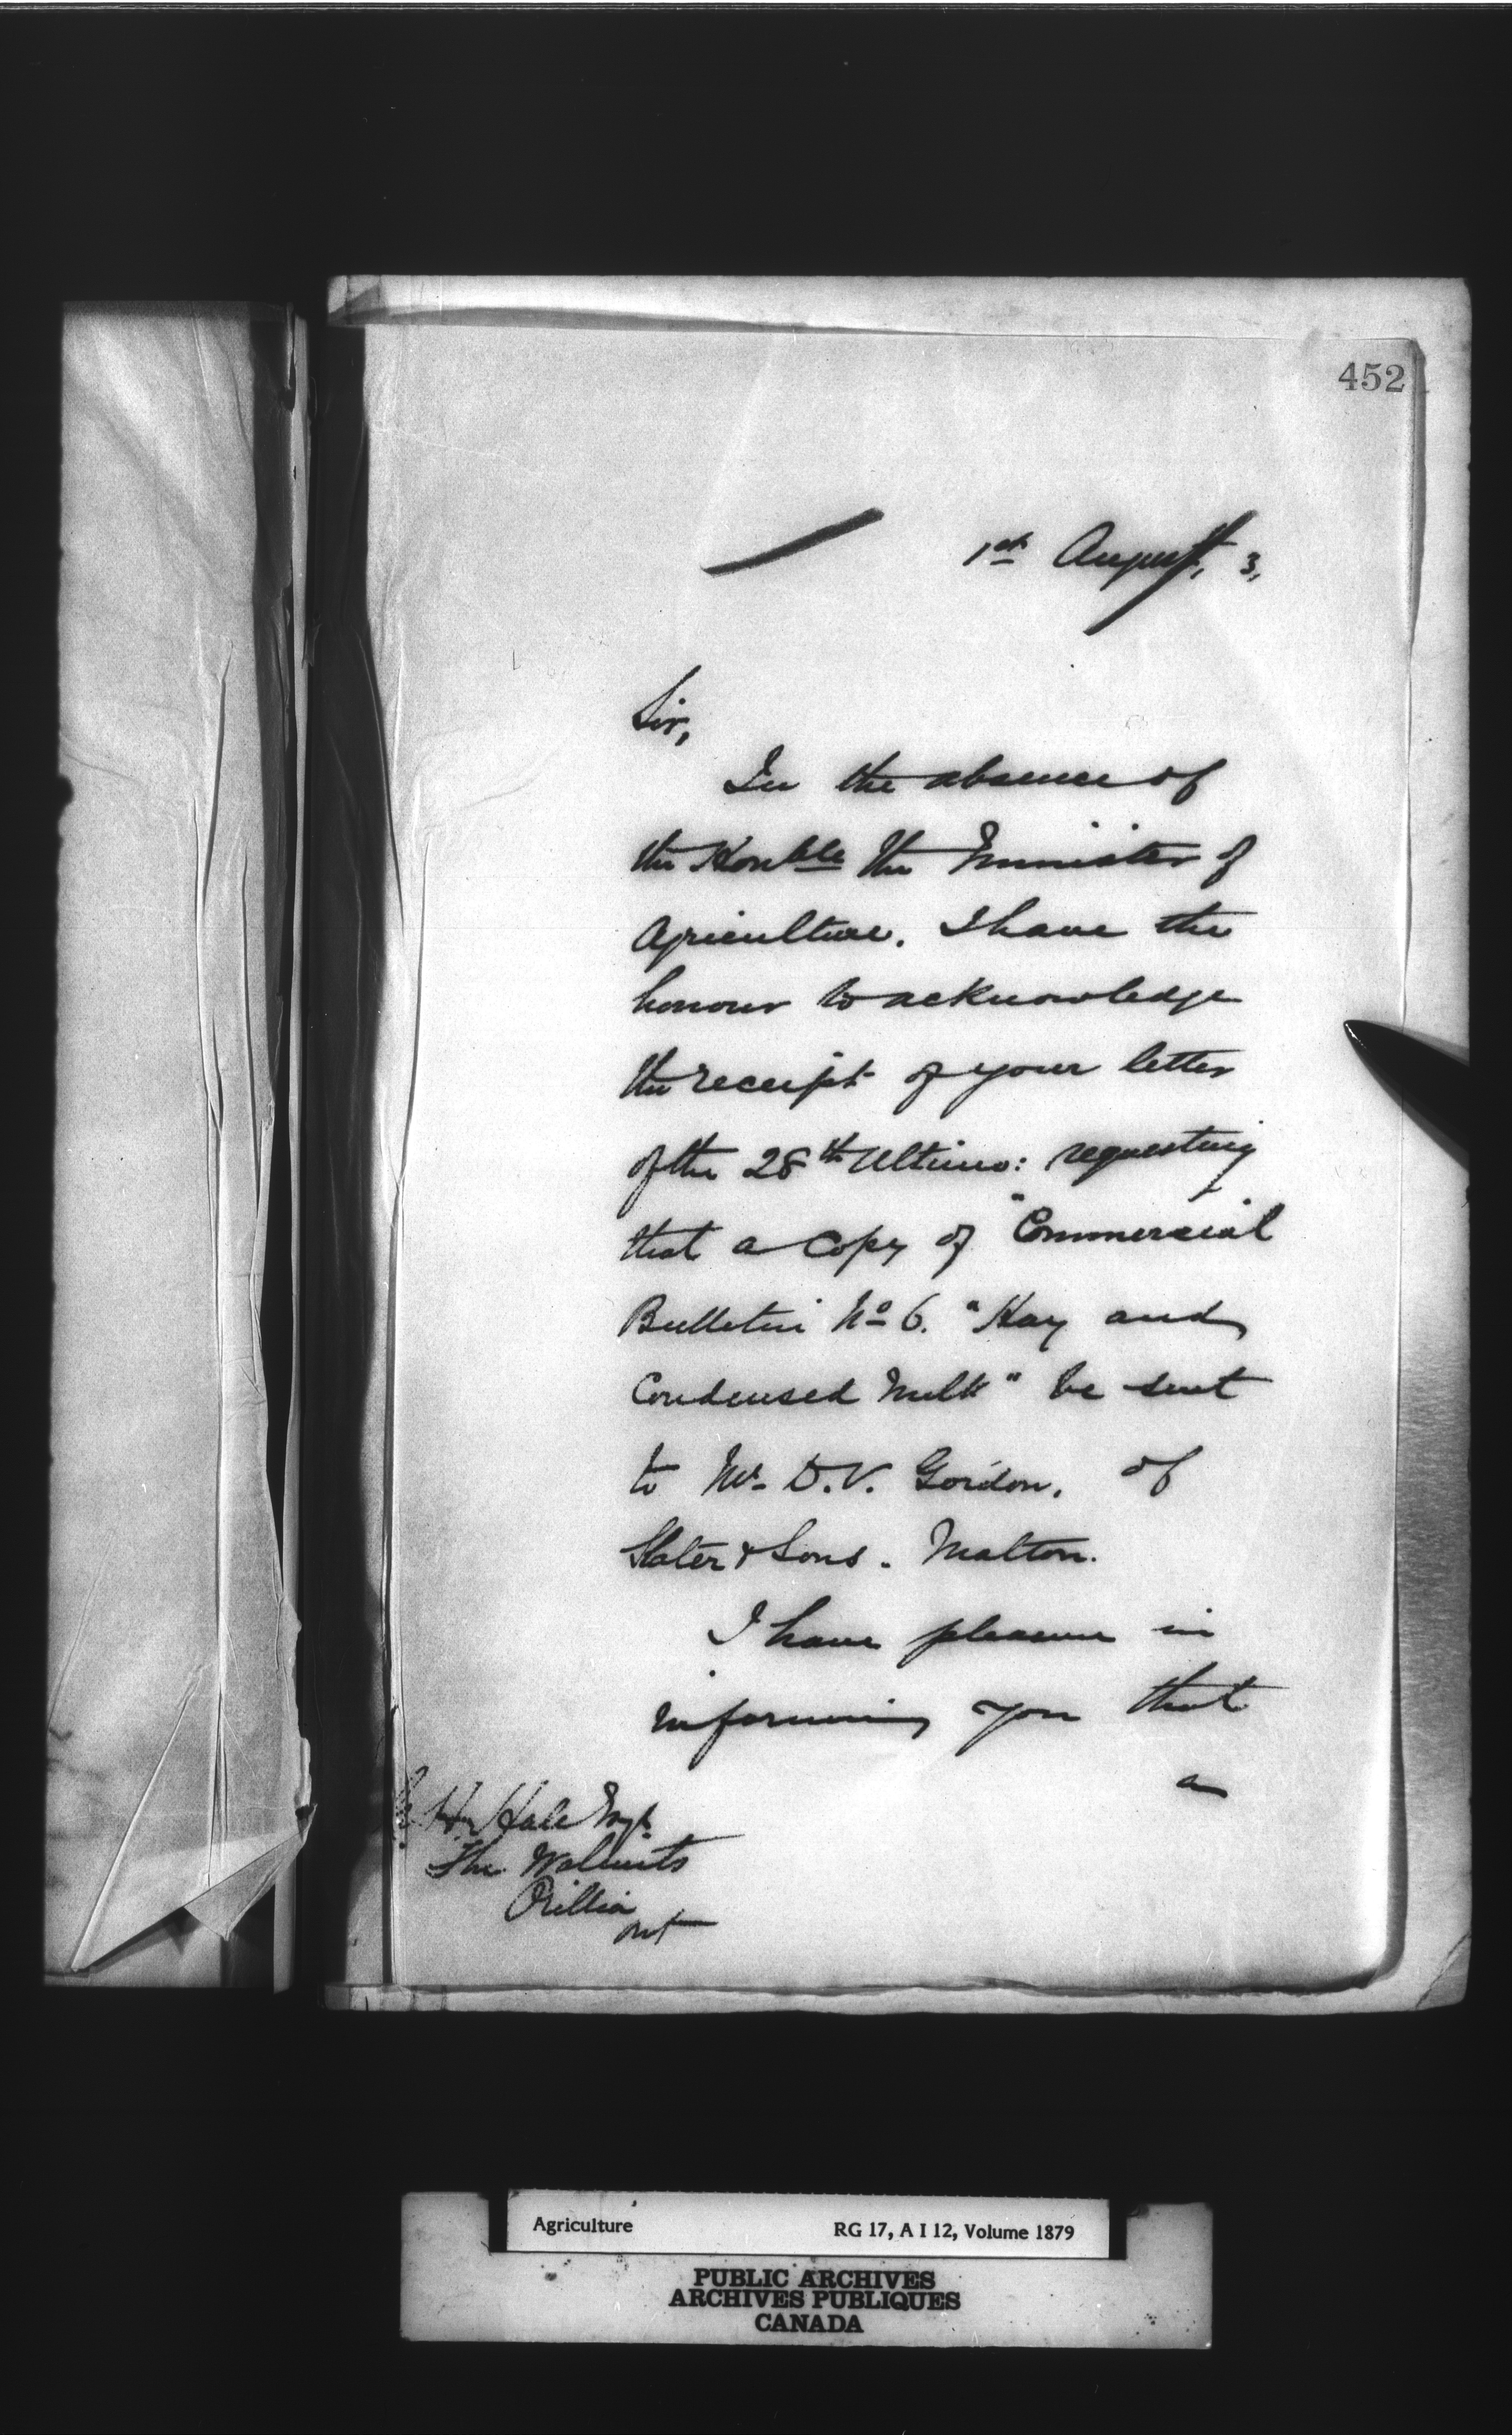 452
1st August, 3,
Sir,
In the absence of
the Honble the Minister of
Agriculture. I have the
honour to acknowledge
the receipt of your letter
of the 28th Ultimo: requesting
that a Copy of "Commercial
Bulletin No 6. "Hay and
Condensed Milk" be sent
to Mr D.V. Gordon. of
Slater & Sons. Malton.
I have pleasure in
informing you that
a
H. Hale Esq.
The Walnuts
Orillia
Ont
Agriculture RG 17, A I 12, Volume 1879
PUBLIC ARCHIVES
ARCHIVES PUBLIQUES
CANADA